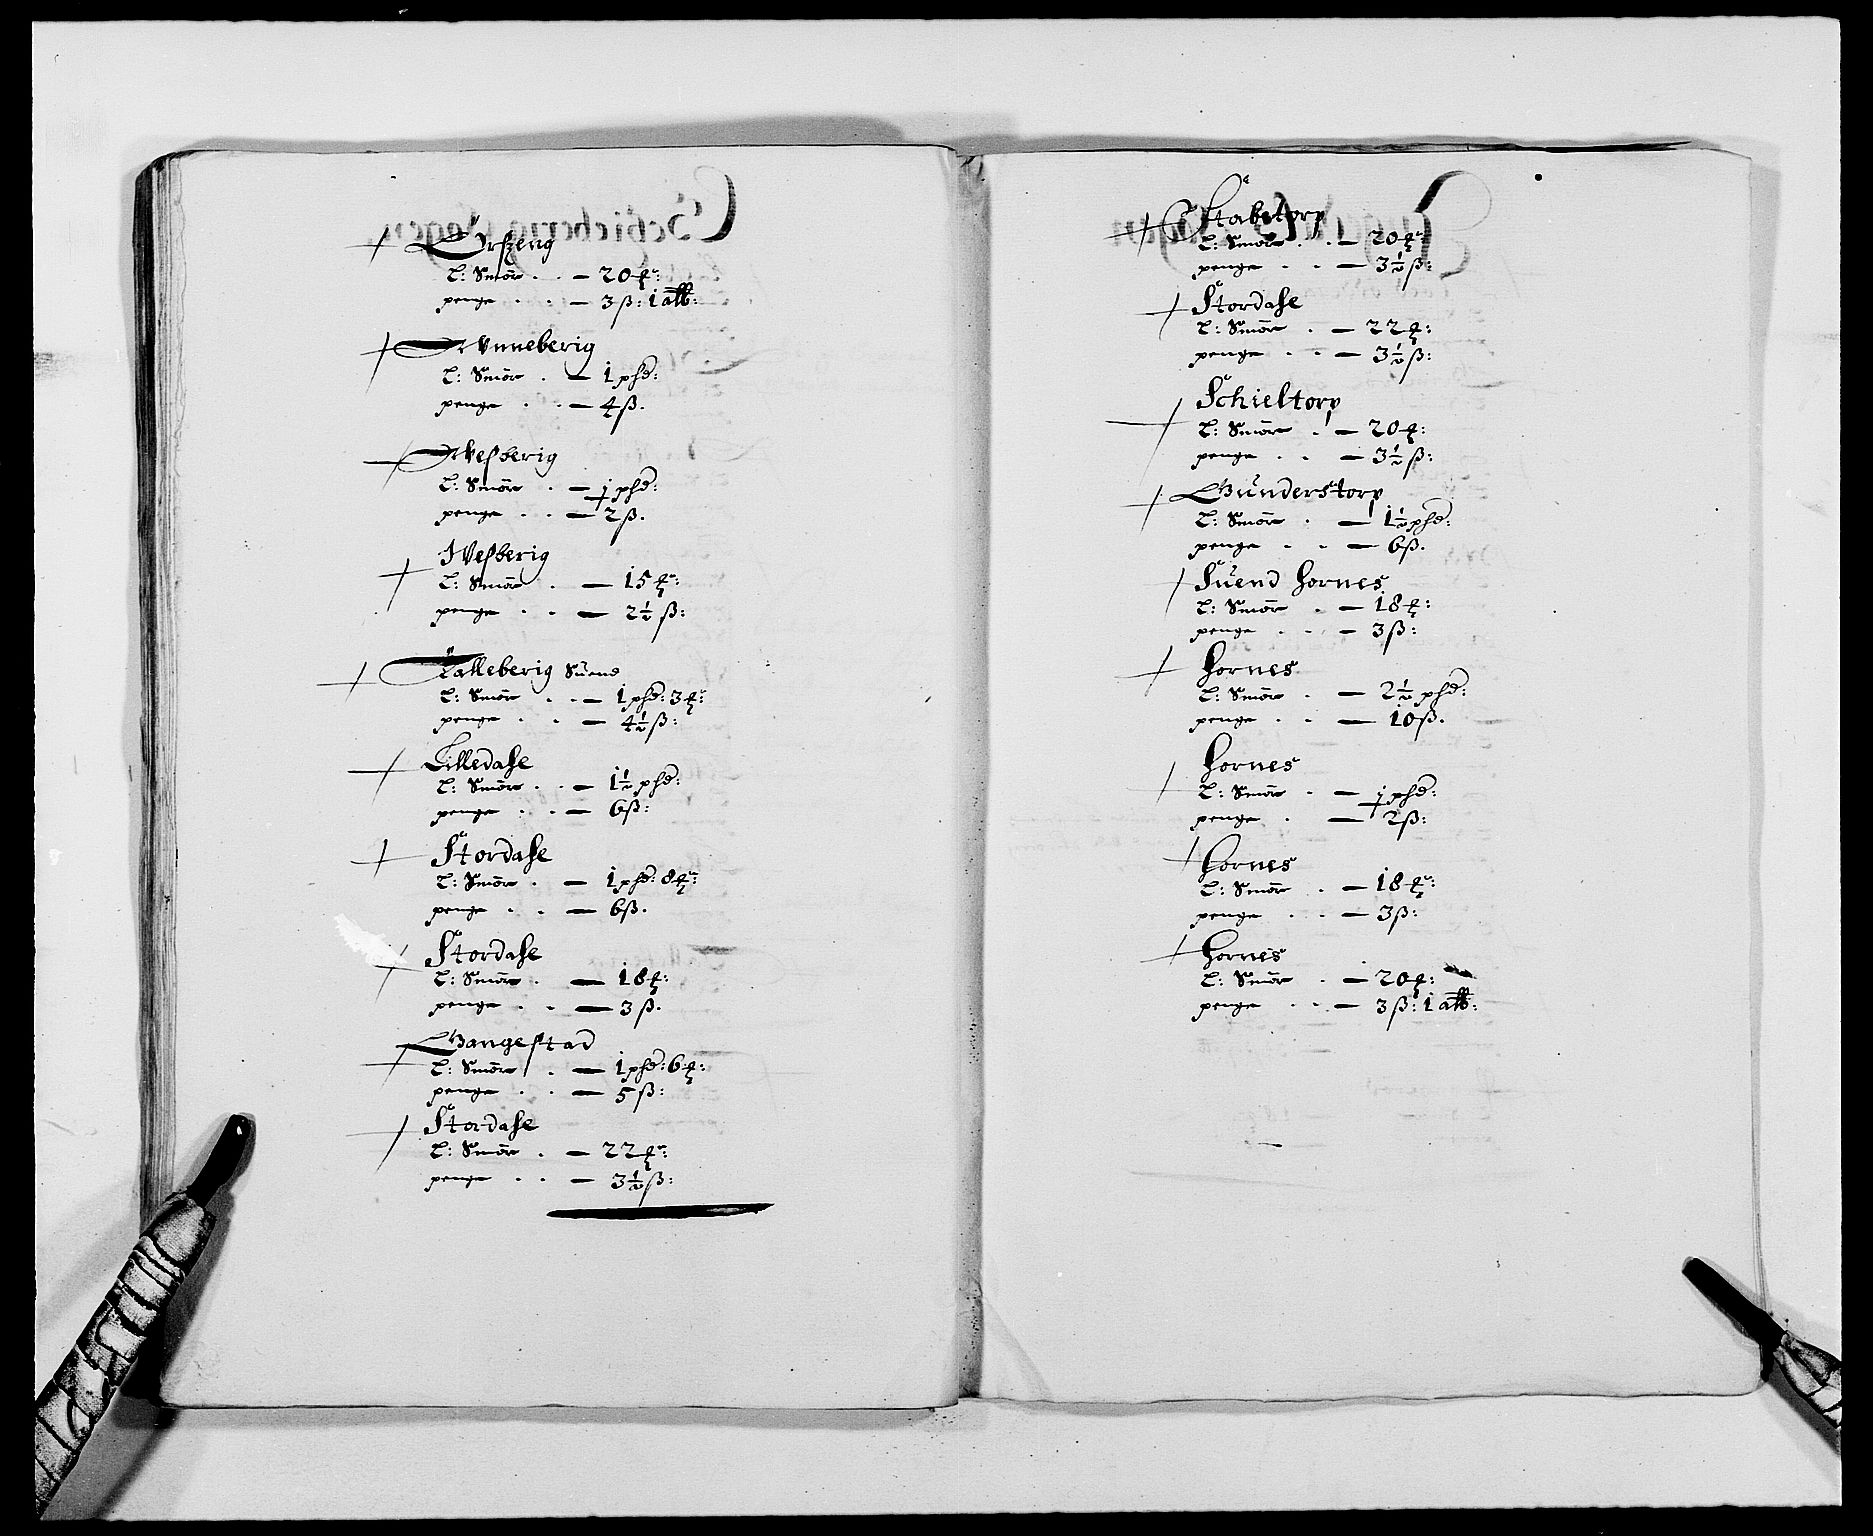 Örszeng
L: Smör . . — 20 ℔:
penge . . . — 3 ß: 1 alb:
Wnneberig
L: Smör . — 1 phd:
penge . . — 4 ß.
Wesberig
L: Smör . — ½ phd:
penge . . — 2 ß.
Wesberig
L: Smör . — 15 ℔:
penge . . — 2½ ß:
Kalleberig Suend
L: Smör . . — 1 phd: 3 ℔:
penge . . — 4½ ß:
Lilledahl
L: Smör . . — 1½ phd:
penge . . — 6 ß:
Stordahl
L: Smör . — 1 phd: 8 ℔:
penge . . — 6 ß.
Stordahl
L: Smör . — 18 ℔:
penge . . — 3 ß.
Gangestad
L: Smör . — 1 phd: 6 ℔:
penge . . — 5 ß:
Stordahl
L: Smör . — 22 ℔:
penge . . — 3½ ß:
Stabetorp
L: Smör . . — 20 ℔:
penge . . — 3½ ß:
Stordahl
L: Smör . — 22 ℔:
penge . . — 3½ ß:
Schieltorp
L: Smör . — 20 ℔:
penge . . — 3½ ß:
Gunderstorp
L: Smör . — 1½ phd:
penge . . — 6 ß.
Suend Hornes
L: Smör . — 18 ℔:
penge . . — 3 ß:
Hornes
L: Smör . — 2½ phd:
penge . . — 10 ß.
Hornes
L: Smör . — ½ phd:
penge . — 2 ß:
Hornes
L: Smör . — 18 ℔:
penge . . . — 3 ß:
Hornes
L: Smör . — 20 ℔:
penge . . . — 3 ß: 1 alb: